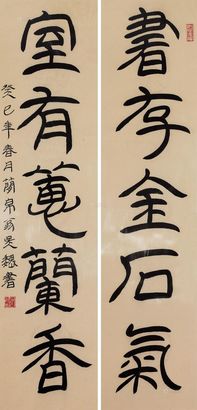 書存金石氣
室有蕙蘭香
癸巳年春月蘭帛翁吳懸書